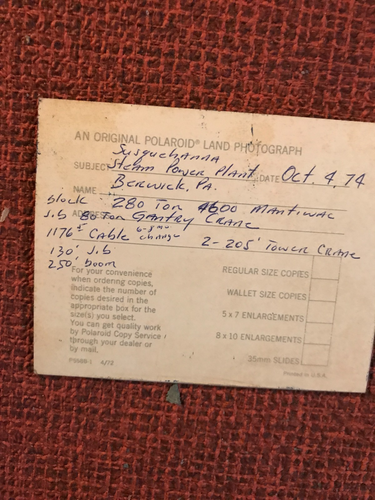 AN ORIGINAL POLAROID® LAND PHOTOGRAPH
Susquehanna
SUBJECT Steam Power Plant DATE Oct. 4, 74
NAME Berwick, PA.
block 280 Ton 4600 Manitiwac
ADDRESS Jib 80 Ton Gantry Crane
1176± Cable change 2-205' Tower Crane
130' Jib
250' boom
For your convenience
when ordering copies,
indicate the number of
copies desired in the
appropriate box for the
size(s) you select.
You can get quality work
by Polaroid Copy Service
through your dealer or
by mail.
REGULAR SIZE COPIES
WALLET SIZE COPIES
5 x 7 ENLARGEMENTS
8 x 10 ENLARGEMENTS
35mm SLIDES
P5668-1 4/72
Printed in U.S.A.